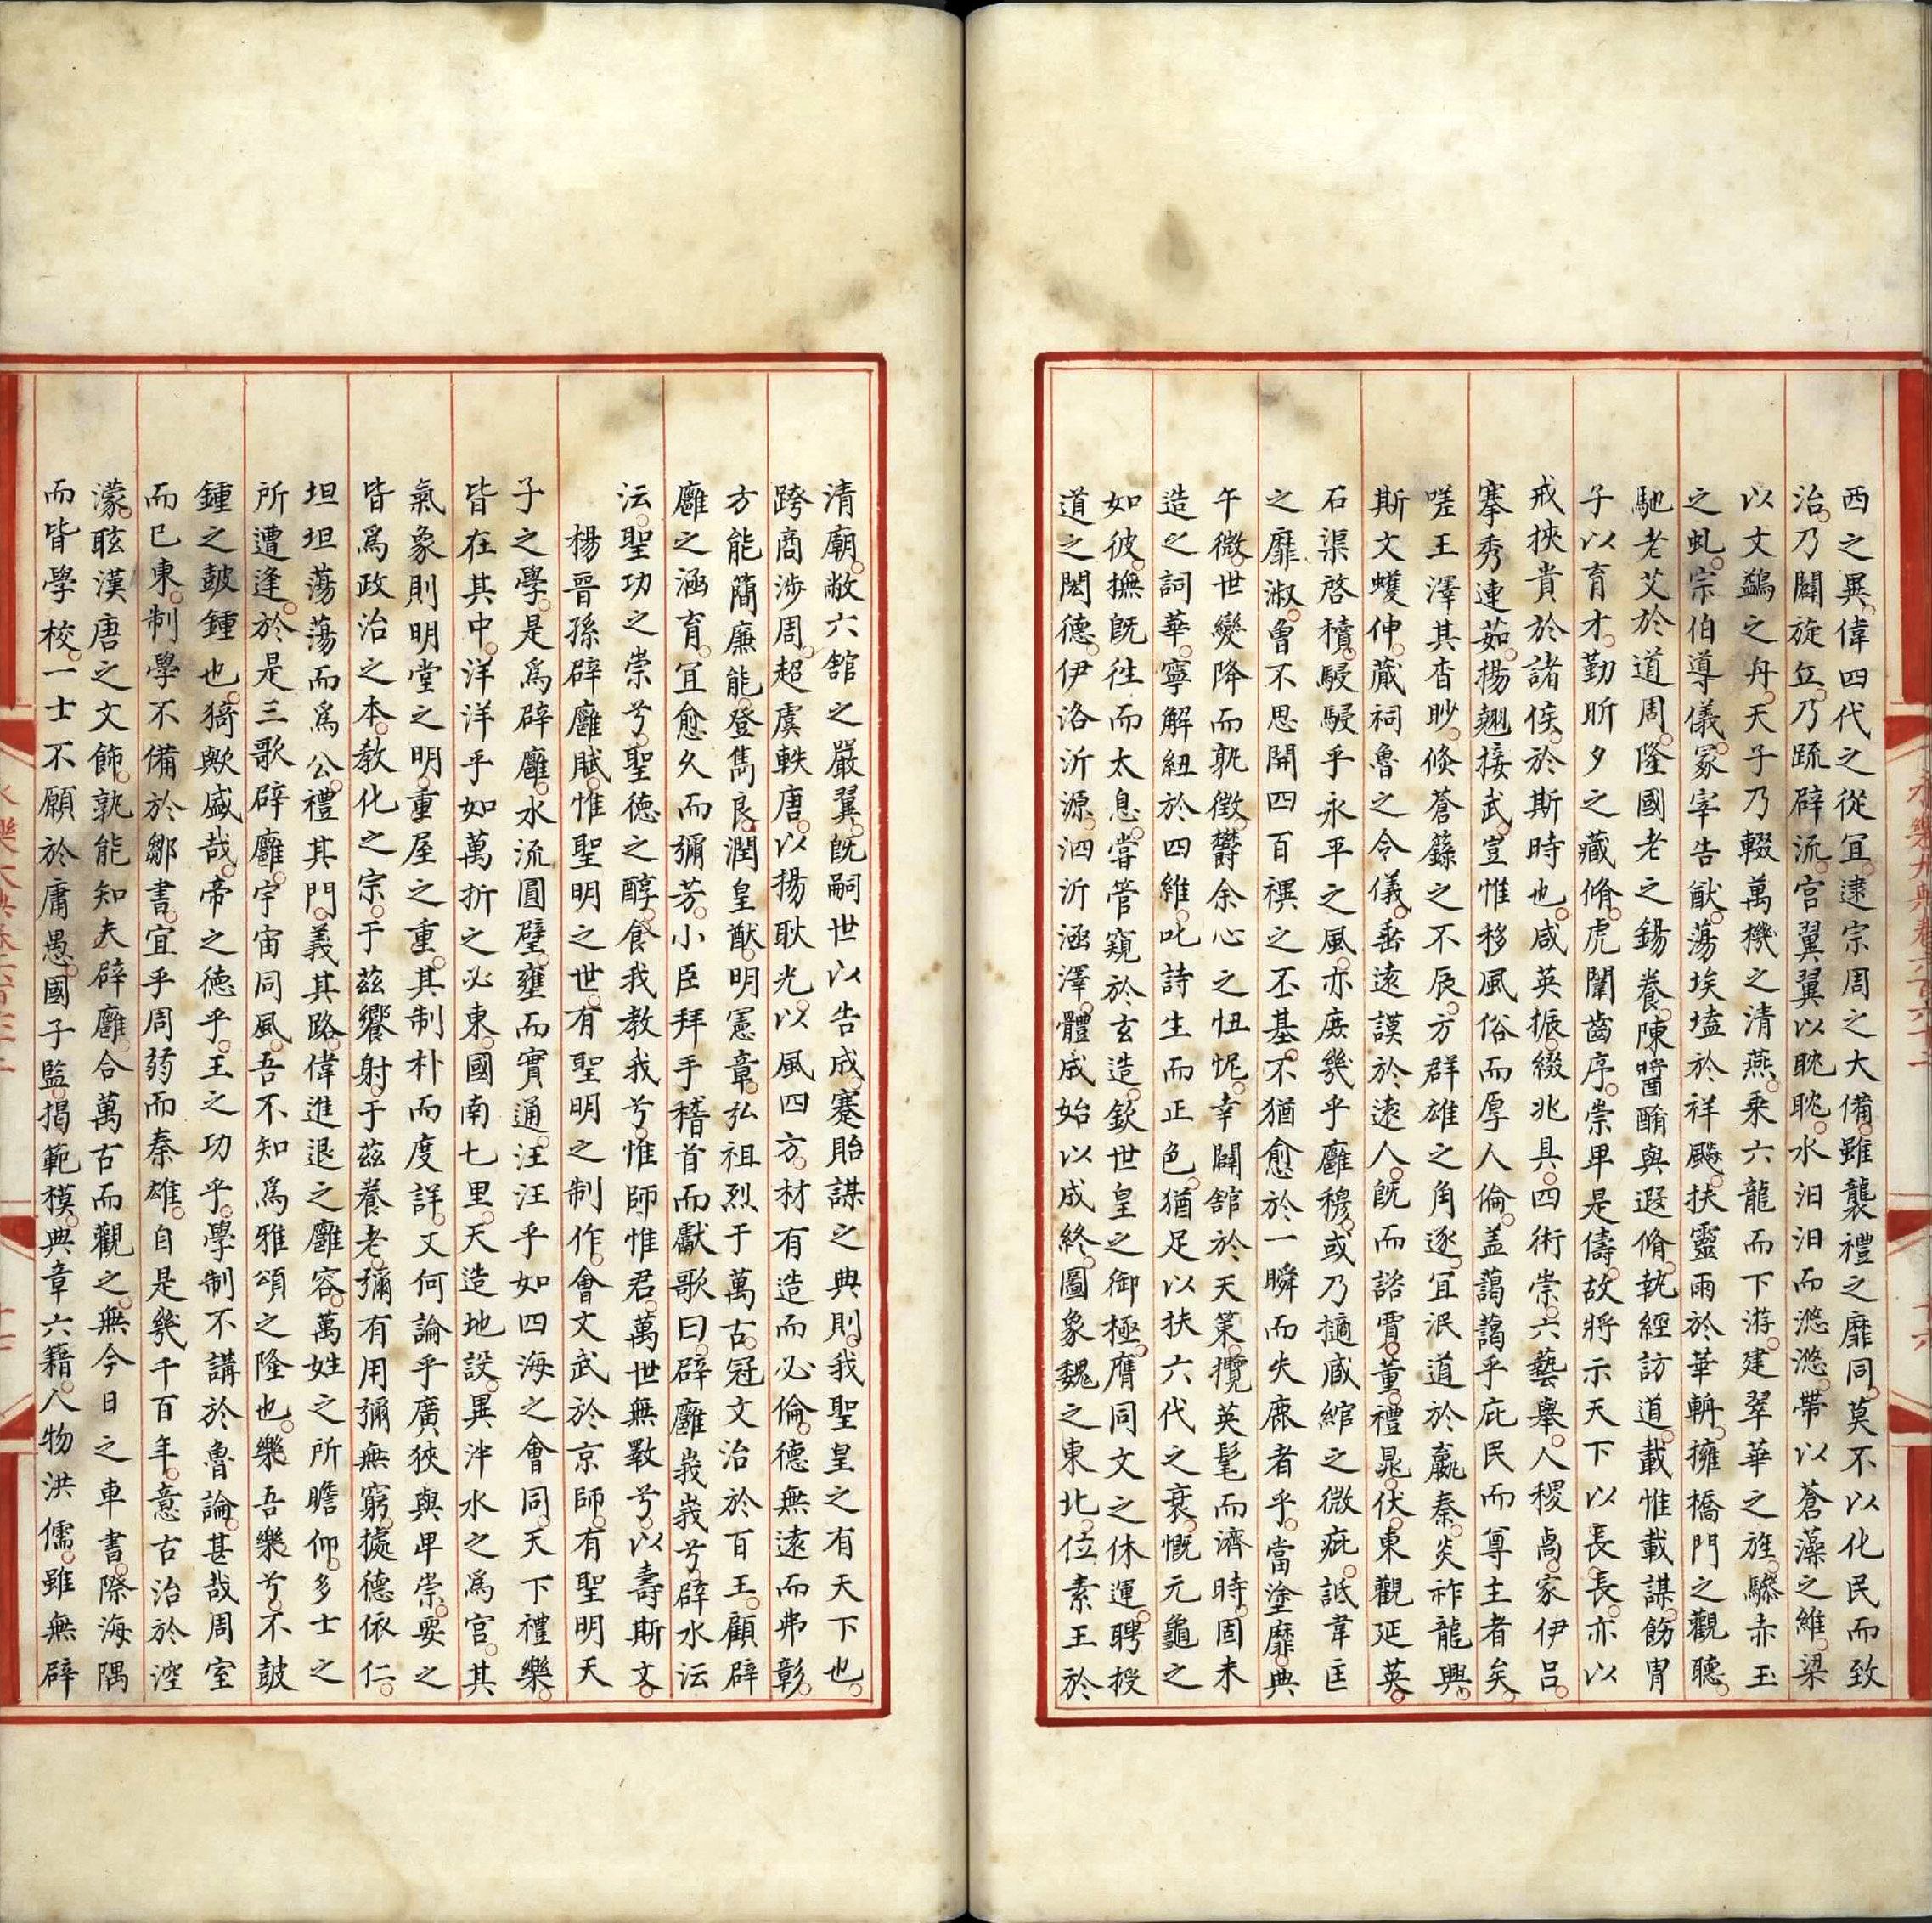 西之異偉四代之從宜逮宗周之大備雖襲禮之靡同莫不以化民而致
治乃闢旋丘乃疏辟流宮翼翼以耽耽水汩汩而滺滺帶以蒼藻之維梁
以文鷁之舟天子乃輟萬機之清燕乘六龍而下游建翠華之旌驂赤玉
之虬宗伯導儀冢宰告猷蕩埃壒於祥飈扶靈雨於華輈擁橋門之觀聽
馳老艾於道周隆國老之鍚養陳醬酳與遐脩執經訪道載惟載謀飭胄
子以育才勤昕夕之藏脩虎闈齒序崇卑是儔故將示天下以長長亦以
戒挾貴於諸侯於斯時也咸英振綴兆具四術崇六藝舉人稷卨家伊呂
搴秀連茹揚翹接武豈惟移風俗而厚人倫盖藹藹乎庇民而尊主者矣
嗟王澤其杳眇倐蒼籙之不辰方群雄之角逐宜泯道於嬴秦炎祚龍興
斯文蠖伸蕆祠魯之令儀垂遠謨於遠人旣而諮賈董禮晁伏東觀延英
石渠啓櫝駸駸乎永平之風亦庶幾乎廱穆或乃擿戚綰之微疵詆韋匡
之靡淑曾不思開四百禩之丕基不猶愈於一瞬而失鹿者乎當塗靡典
午微世變降而孰徵欝余心之忸怩幸闢舘於天策攬英髦而濟時固未
造之詞華寧解紐於四維叱詩生而正色猶足以扶六代之衰慨元龜之
如彼撫旣徃而太息嘗管窺於玄造欽世皇之御極膺同文之休運聘授
道之閎德伊洛沂源泗沂涵澤體成始以成終圖象魏之東北位素王於
清廟敝六舘之嚴翼旣嗣世以告成蹇貽謀之典則我聖皇之有天下也
跨商涉周超虞軼唐以揚耿光以風四方材有造而必倫德無遠而弗彰
方能簡廉能登雋良潤皇猷明憲章弘祖烈于萬古冠文治於百王顧辟
廱之涵育宜愈久而彌芳小臣拜手稽首而獻歌曰辟廱峩峩兮辟水沄
沄聖功之崇兮聖德之醇食我教我兮惟師惟君萬世無斁兮以壽斯文
楊晉孫辟廱賦惟聖明之世有聖明之制作會文武於京師有聖明天
子之學是爲辟廱水流圓璧壅而實通汪汪乎如四海之會同天下禮樂
皆在其中洋洋乎如萬折之必東國南七里天造地設異泮水之爲宮其
氣象則明堂之明重屋之重其制朴而度詳又何論乎廣狹與卑崇要之
皆爲政治之本教化之宗于茲饗射于茲養老彌有用彌無窮㨿德依仁
坦坦蕩蕩而爲公禮其門義其路偉進退之廱容萬姓之所瞻仰多士之
所遭逢於是三歌辟廱宇宙同風吾不知爲雅頌之隆也樂吾樂兮不鼓
鍾之鼓鍾也猗歟盛哉帝之德乎王之功乎學制不講於魯論甚哉周室
而已東制學不備於鄒書宜乎周蒭而秦雄自是幾千百年意古治於涳
濛眩漢唐之文飾孰能知夫辟廱合萬古而觀之無今日之車書際海隅
而皆學校一士不願於庸愚國子監揭範模典章六籍人物洪儒雖無辟